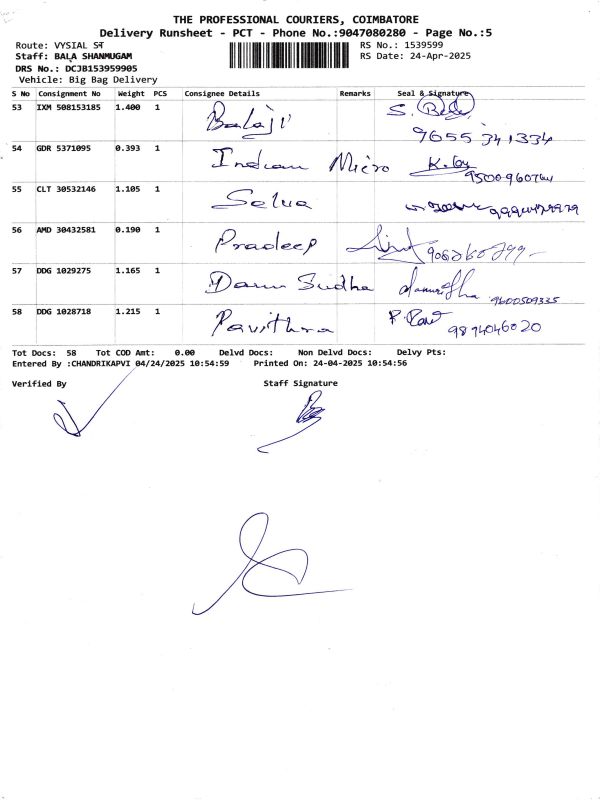 THE PROFESSIONAL COURIERS, COIMBATORE
Delivery Runsheet - PCT - Phone No.:9047080280 - Page No.:5
Route: VYSIAL ST
RS No.: 1539599
Staff: BALA SHANMUGAM
RS Date: 24-Apr-2025
DRS No.: DCJB153959905
Vehicle: Big Bag Delivery
S No Consignment No Weight PCS Consignee Details Remarks Seal & Signature
53 IXM 508153185 1.400 1 Balaji S.
9655 341334
54 GDR 5371095 0.393 1 Indian Micro
9500960764
55 CLT 30532146 1.105 1 Selva
56 AMD 30432581 0.190 1 Pradeep
57 DDG 1029275 1.165 1 Sudha
9600509335
58 DDG 1028718 1.215 1 Pavithra
9894046020
Tot Docs: 58 Tot COD Amt: 0.00 Delvd Docs: Non Delvd Docs: Delvy Pts:
Entered By :CHANDRIKAPVI 04/24/2025 10:54:59 Printed On: 24-04-2025 10:54:56
Verified By Staff Signature